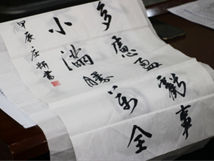 多慮盈虧事
小滿勝萬全
甲辰 書